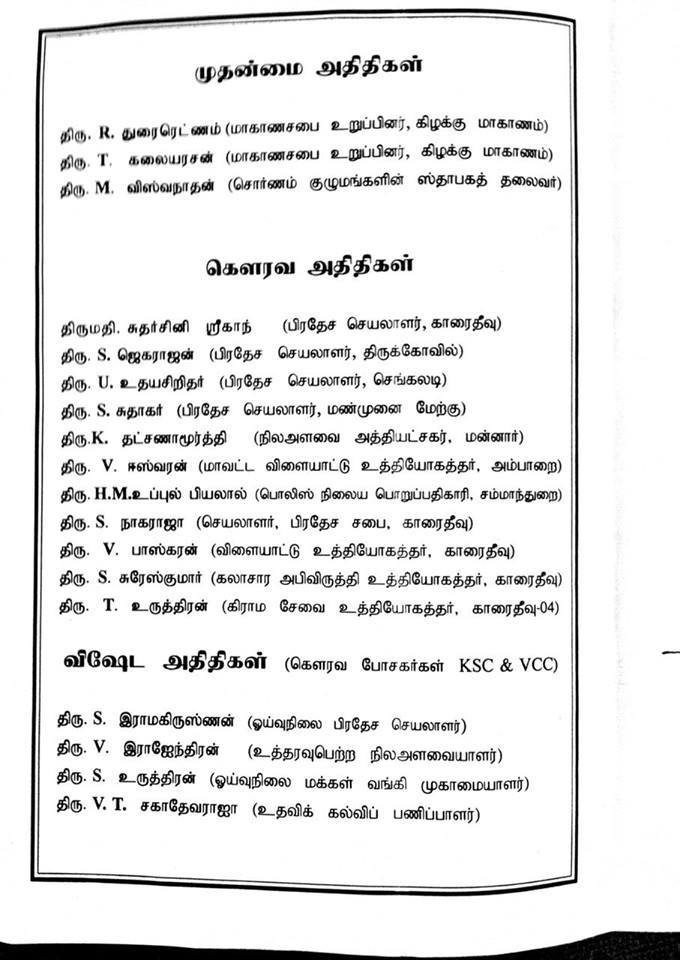 முதன்மை அதிதிகள்
திரு. R. துரைரெட்ணம் (மாகாணசபை உறுப்பினர், கிழக்கு மாகாணம்)
திரு. T. கலையரசன் (மாகாணசபை உறுப்பினர், கிழக்கு மாகாணம்)
திரு. M. விஸ்வநாதன் (சொர்ணம் குழுமங்களின் ஸ்தாபகத் தலைவர்)
கௌரவ அதிதிகள்
திருமதி. சுதர்சினி ஸ்ரீகாந் (பிரதேச செயலாளர், காரைதீவு)
திரு. S. ஜெகராஜன் (பிரதேச செயலாளர், திருக்கோவில்)
திரு. U. உதயசிறிதர் (பிரதேச செயலாளர், செங்கலடி)
திரு. S. சுதாகர் (பிரதேச செயலாளர், மண்முனை மேற்கு)
திரு.K. தட்சணாமூர்த்தி (நிலஅளவை அத்தியட்சகர், மன்னார்)
திரு. V. ஈஸ்வரன் (மாவட்ட விளையாட்டு உத்தியோகத்தர், அம்பாறை)
திரு. H.M.உப்புல் பியலால் (பொலிஸ் நிலைய பொறுப்பதிகாரி, சம்மாந்துறை)
திரு. S. நாகராஜா (செயலாளர், பிரதேச சபை, காரைதீவு)
திரு. V. பாஸ்கரன் (விளையாட்டு உத்தியோகத்தர், காரைதீவு)
திரு. S. சுரேஸ்குமார் (கலாசார அபிவிருத்தி உத்தியோகத்தர், காரைதீவு)
திரு. T. உருத்திரன் (கிராம சேவை உத்தியோகத்தர், காரைதீவு-04)
விஷேட அதிதிகள் (கௌரவ போசகர்கள் KSC & VCC)
திரு. S. இராமகிருஸ்ணன் (ஓய்வுநிலை பிரதேச செயலாளர்)
திரு. V. இராஜேந்திரன் (உத்தரவுபெற்ற நிலஅளவையாளர்)
திரு. S. உருத்திரன் (ஓய்வுநிலை மக்கள் வங்கி முகாமையாளர்)
திரு. V. T. சகாதேவராஜா (உதவிக் கல்விப் பணிப்பாளர்)